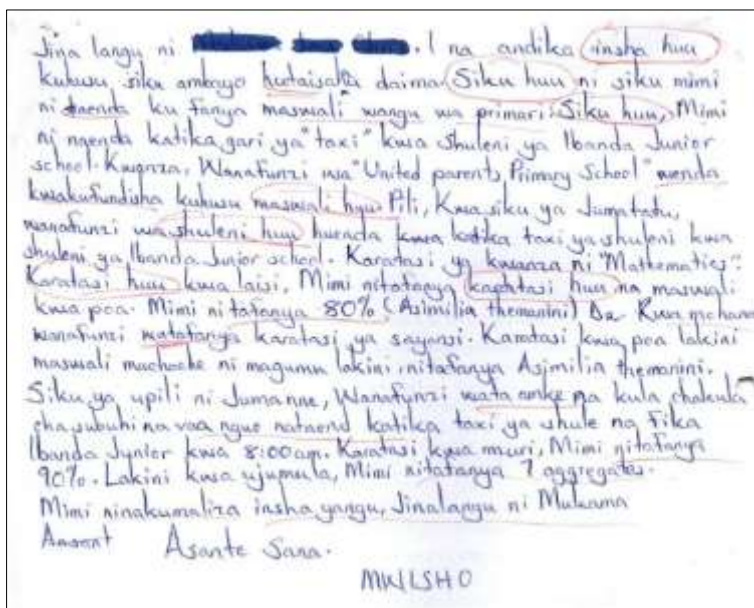 Jina langu ni . I na andika insha huu
kuhusu siku ambayo hutaisahu daima. Siku huu ni siku mimi
ni enda ku fanya maswali wangu wa primari. Siku huu, Mimi
ni ngenda katika gari ya "taxi" kwa Shuleni ya Ibanda Junior
school. Kwanza, Wanafunzi wa "United parents Primary School" wenda
kwakufundisha kuhusu maswali hyu. Pili, Kwa siku ya Jumatatu,
wanafunzi wa shuleni huu huenda kwa katika taxi ya shuleni kwa
shuleni ya Ibanda Junior school. Karatasi ya kwanza ni "Mathematics".
Karatasi huu kwa laisi, Mimi nitafanya huu na maswali
kwa poa. Mimi nitafanya 80% (Asimilia themanini)
wanafunzi watafanya karatasi ya sayansi. Karatasi kwa poa lakini
maswali machache ni magumu lakini, nitafanya Asimilia themanini.
Siku ya upili ni Jumanne, Wanafunzi wata amke na kula chakula
cha subuhi na vaa nguo katika taxi ya shule na fika
Ibanda Junior kwa 8:00am. Karatasi kwa muri, Mimi nitafanya
90%. Lakini kwa ujumula, Mimi nitafanya 7 aggregates.
Mimi ninakumaliza insha yangu, Jinalangu ni Mukama
Asante Sana.
MWISHO